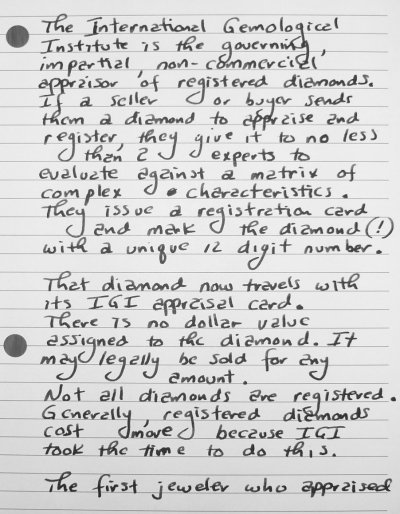 The International Gemological
Institute is the governing,
impartial, non-commercial,
appraisor of registered diamonds.
If a seller or buyer sends
them a diamond to appraise and
register, they give it to no less
than 2 experts to
evaluate against a matrix of
complex characteristics.
They issue a registration card
and mark the diamond (!)
with a unique 12 digit number.
That diamond now travels with
its IGI appraisal card.
There is no dollar value
assigned to the diamond. It
may legally be sold for any
amount.
Not all diamonds are registered.
Generally, registered diamonds
cost more because IGI
took the time to do this.
The first jeweler who appraised